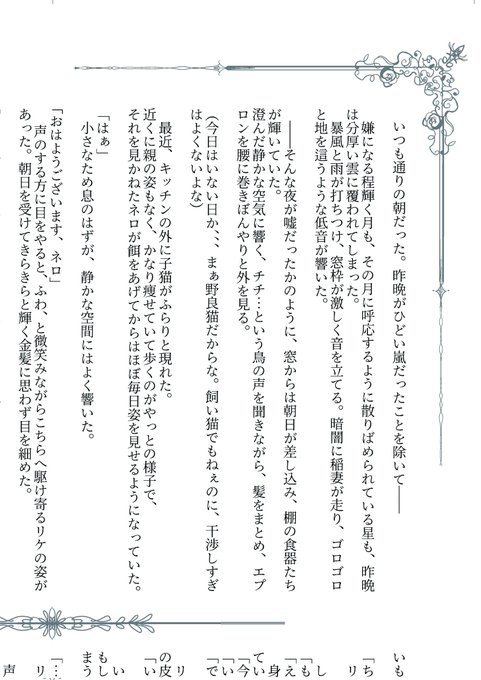 いつも通りの朝だった。昨晩がひどい嵐だったことを除いて――
嫌になる程輝く月も、その月に呼応するように散りばめられている星も、昨晩
は分厚い雲に覆われてしまった。
暴風と雨が打ちつけ、窓枠が激しく音を立てる。暗闇に稲妻が走り、ゴロゴロ
と地を這うような低音が響いた。
――そんな夜が嘘だったかのように、窓からは朝日が差し込み、棚の食器たち
が輝いていた。
澄んだ静かな空気に響く、チチ…という鳥の声を聞きながら、髪をまとめ、エプ
ロンを腰に巻きぼんやりと外を見る。
(今日はいない日か、、まぁ野良猫だからな。飼い猫でもねぇのに、干渉しすぎ
はよくないよな)
最近、キッチンの外に子猫がふらりと現れた。
近くに親の姿もなく、かなり痩せていて歩くのがやっとの様子で、
それを見かねたネロが餌をあげてからはほぼ毎日姿を見せるようになっていた。
「はぁ」
小さなため息のはずが、静かな空間にはよく響いた。
「おはようございます、ネロ」
声のする方に目をやると、ふわ、と微笑みながらこちらへ駆け寄るリケの姿が
あった。朝日を受けてきらきらと輝く金髪に思わず目を細めた。
いも
「ち
リ
し
「も
「え
身
てい
「今
「い
「で
リ
の皮
「い
い
もし
まう
「…
リ
声